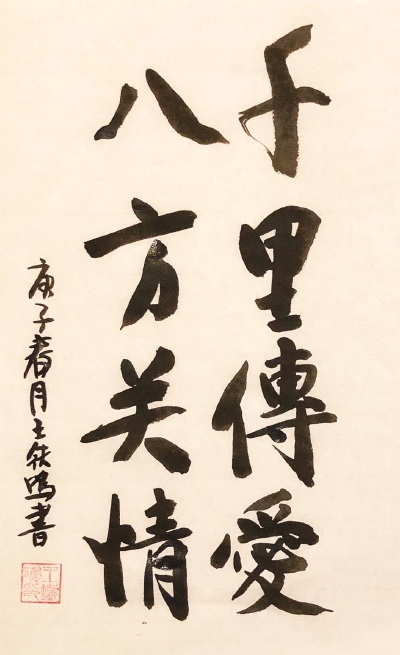 千里傳愛
八方关情
庚子春月王铁鸣書